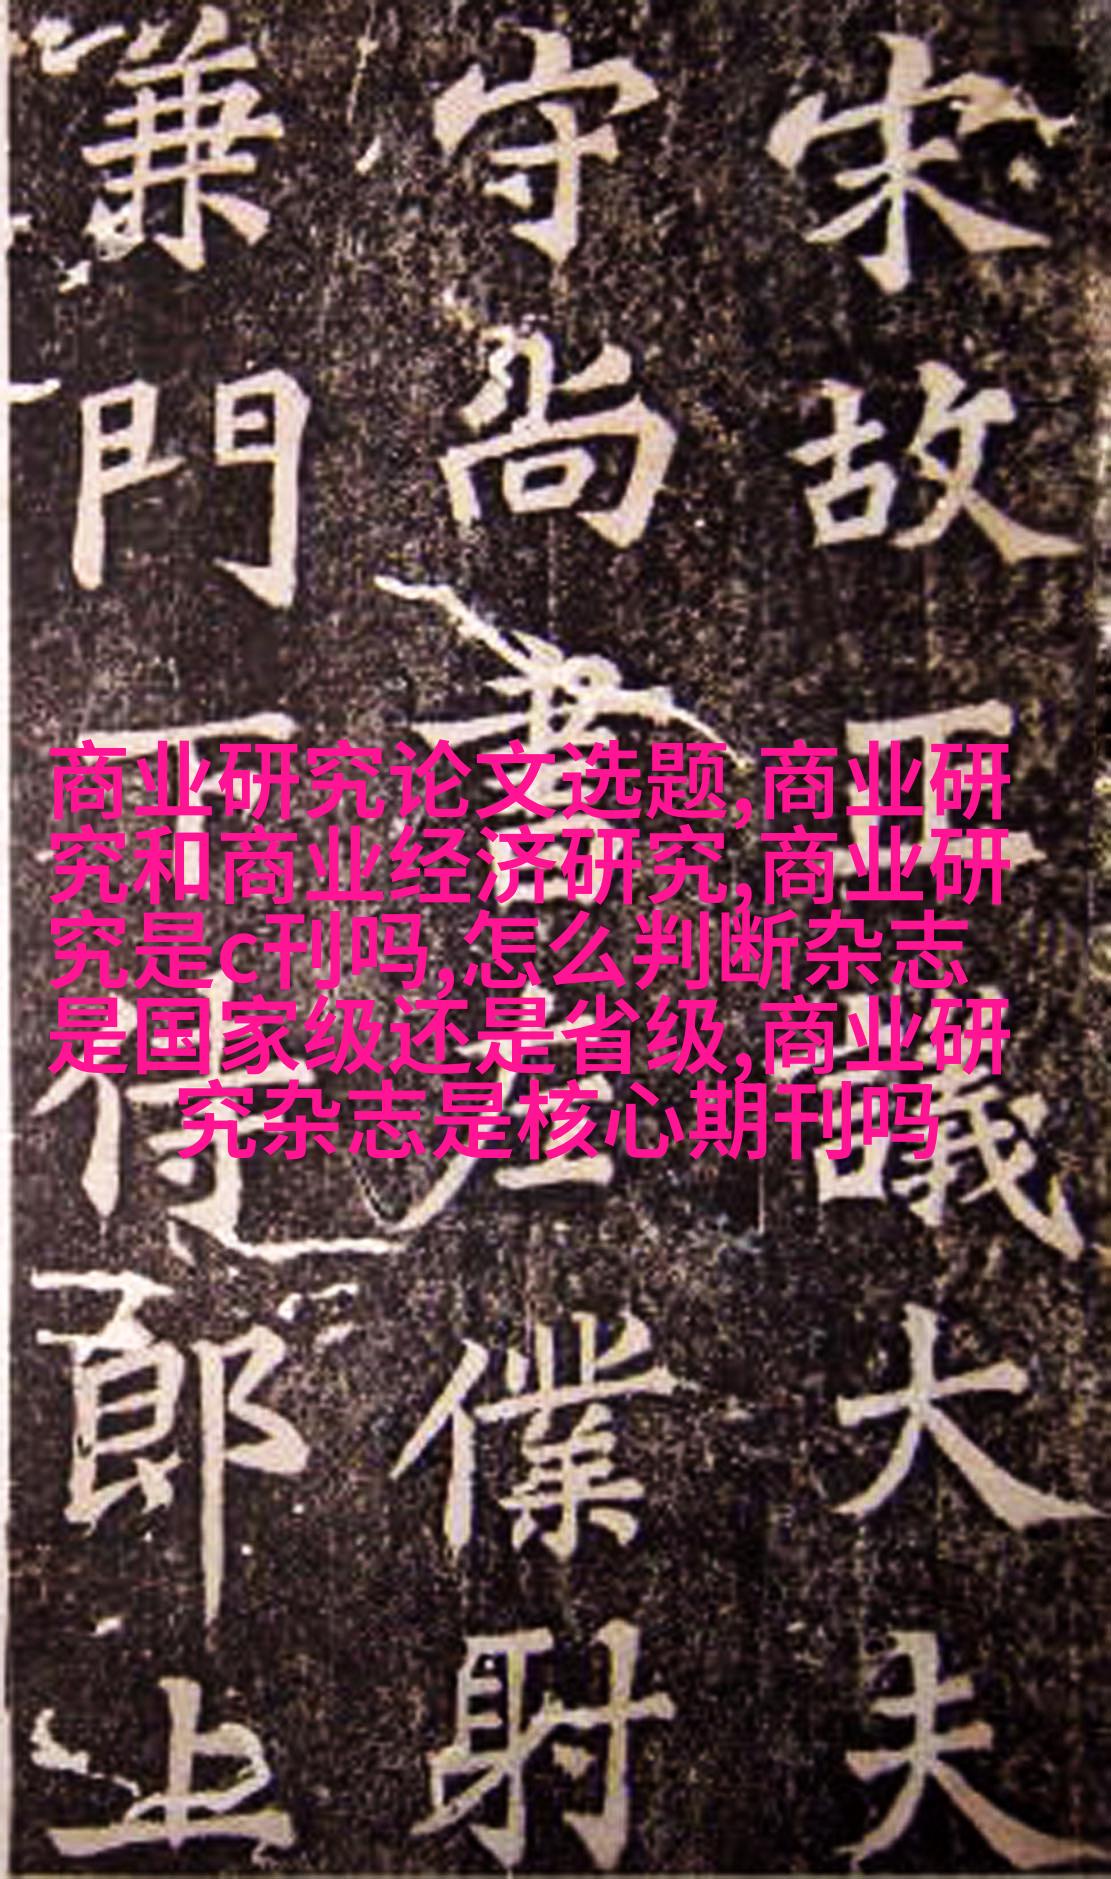 宋故正議大夫
守尚書左僕射
兼門下侍郎上
商业研究论文选题,商业研
究和商业经济研究,商业研
究是c刊吗,怎么判断杂志
是国家级还是省级,商业研
究杂志是核心期刊吗